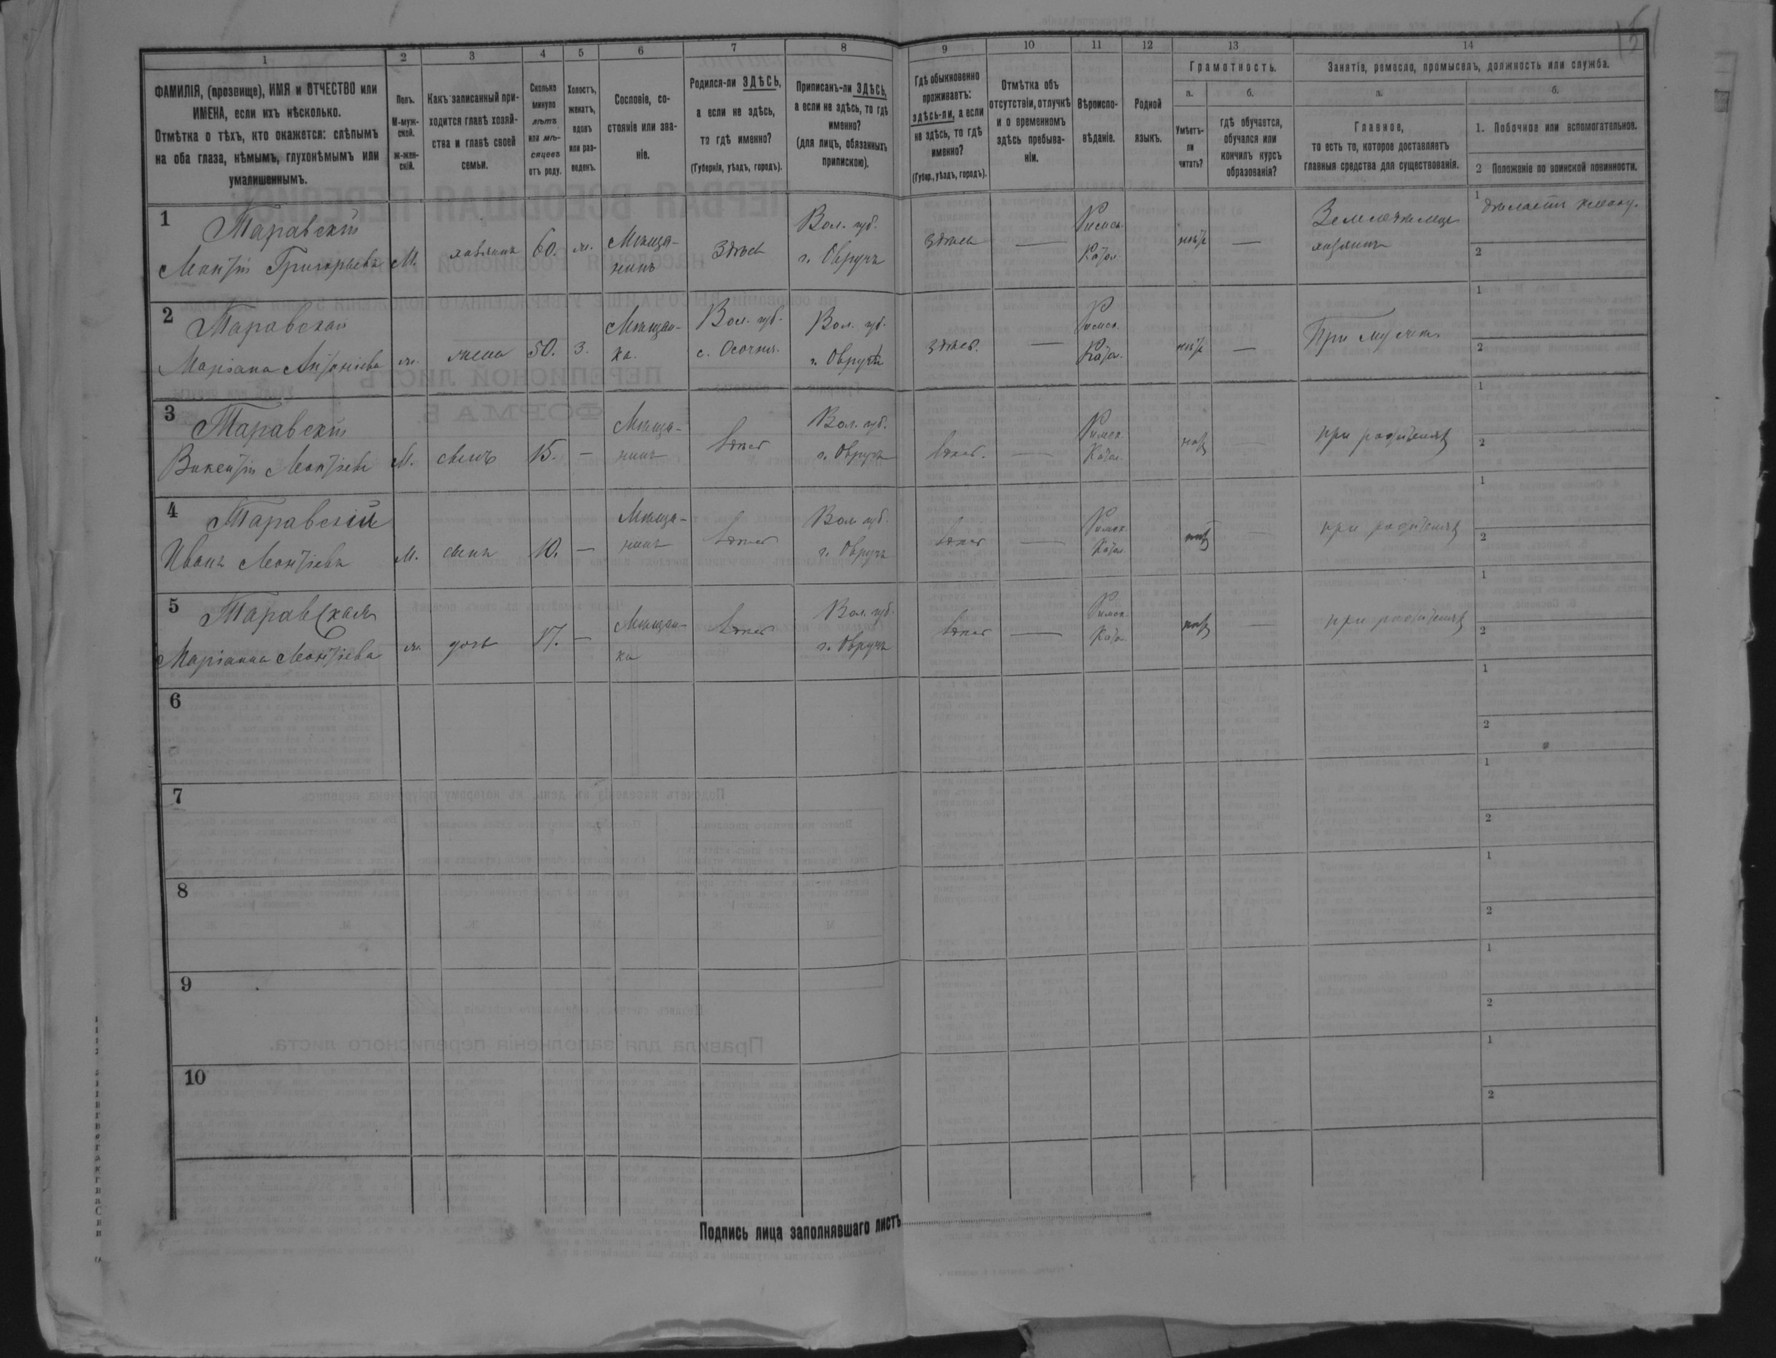 1
2
3
4
5
6
7
8
9
10
11
12
13
14
ФАМИЛІЯ, (прозвище), ИМЯ и ОТЧЕСТВО или
ИМЕНА, если ихъ нѣсколько.
Отмѣтка о тѣхъ, кто окажется: слѣпымъ
на оба глаза, нѣмымъ, глухонѣмымъ или
умалишеннымъ.
Полъ.
М-муж-
ской.
Ж-жен-
скій.
Какъ записанный при-
ходится главѣ хозяй-
ства и главѣ своей
семьи.
Сколько
минуло
лѣтъ
или мѣ-
сяцевъ
отъ роду.
Холостъ,
женатъ,
вдовъ
или раз-
веденъ.
Сословіе, со-
стояніе или зва-
ніе.
Родился-ли ЗДѢСЬ,
а если не здѣсь,
то гдѣ именно?
(Губернія, уѣздъ, городъ).
Приписанъ-ли ЗДѢСЬ,
а если не здѣсь, то гдѣ
именно?
(для лицъ, обязанныхъ
припискою).
Гдѣ обыкновенно
проживаетъ:
здѣсь-ли, а если
не здѣсь, то гдѣ
именно?
(Губер., уѣздъ, городъ).
Отмѣтка объ
отсутствіи, отлучкѣ
и о временномъ
здѣсь пребыва-
ніи.
Вѣроиспо-
вѣданіе.
Родной
языкъ.
Грамотность.
а.
Умѣетъ-
ли
читать?
б.
гдѣ обучается,
обучался или
кончилъ курсъ
образованія?
Занятіе, ремесло, промыселъ, должность или служба.
а.
Главное,
то есть то, которое доставляетъ
главныя средства для существованія.
б.
1. Побочное или вспомогательное.
2 Положеніе по воинской повинности.
1
Таравскій
Леонтій Григорьевъ
М
хозяинъ
60.
ж.
Мѣща-
нинъ
Здѣсь
Вол. губ.
г. Овручъ
здѣсь
—
Римск.
Катол.
нѣтъ
—
Земледѣлецъ
хозяинъ
1
2
2
Таравская
Маріана Антоніева
ж.
жена
50.
з.
Мѣщан-
ка.
Вол. губ.
Вол. губ.
г. Овручъ
здѣсь.
—
Римск.
Катол.
нѣтъ
—
При мужѣ
1
2
3
Таравскій
Викентій Леонтіевъ
М.
сынъ
15.
—
Мѣща-
нинъ
здѣсь
Вол. губ.
г. Овручъ
здѣсь.
—
Римск.
Катол.
нѣтъ
—
при родителяхъ
1
2
4
Таравскій
Иванъ Леонтіевъ
М.
сынъ
10.
—
Мѣща-
нинъ
здѣсь
Вол. губ.
г. Овручъ
здѣсь
—
Римск.
Катол.
нѣтъ
—
при родителяхъ
1
2
5
Таравская
Маріанна Леонтіева
ж.
дочь
17.
—
Мѣщан-
ка
здѣсь
Вол. губ.
г. Овручъ
здѣсь
—
Римск.
Катол.
нѣтъ
—
при родителяхъ
1
2
6
1
2
7
1
2
8
1
2
9
1
2
10
1
2
Подпись лица заполнявшаго листъ